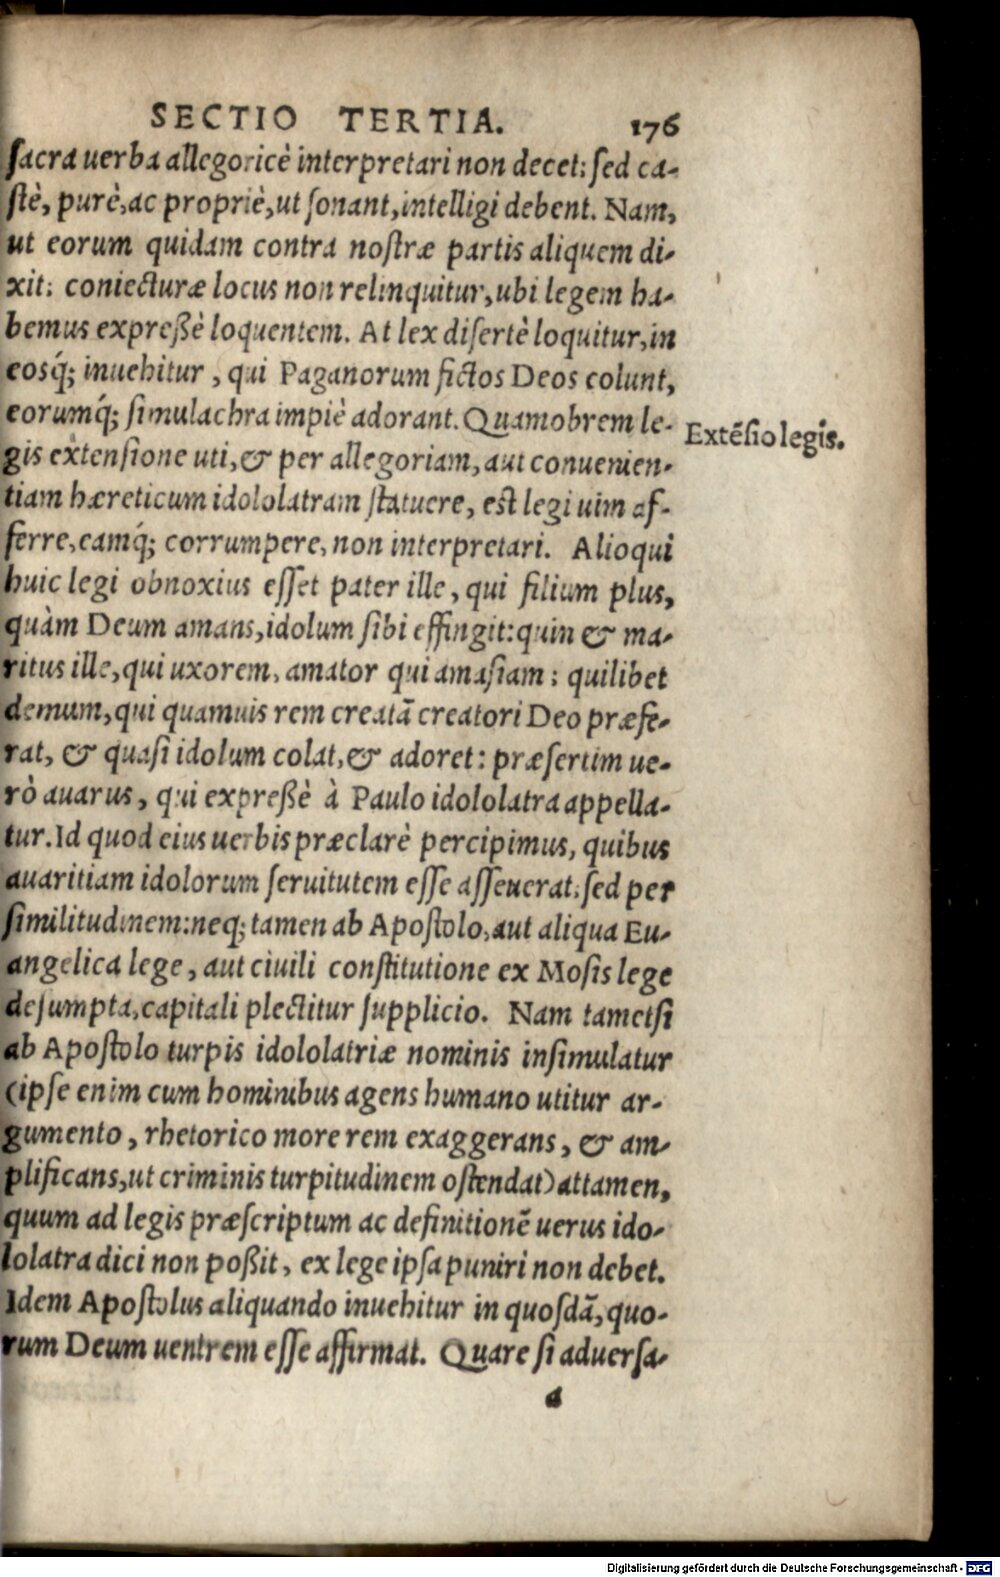 SECTIO TERTIA. 176
sacra uerba allegoricè interpretari non decet: sed ca-
stè, purè, ac propriè, ut sonant, intelligi debent. Nam,
ut eorum quidam contra nostræ partis aliquem di-
xit: coniecturæ locus non relinquitur, ubi legem ha-
bemus expreßè loquentem. At lex disertè loquitur, in
eosq́; inuehitur, qui Paganorum fictos Deos colunt,
eorumq́; simulachra impiè adorant. Quamobrem le-
Extẽsio legis.
gis extensione uti, & per allegoriam, aut conuenien-
tiam hæreticum idololatram statuere, est legi uim af-
ferre, eamq́; corrumpere, non interpretari. Alioqui
huic legi obnoxius esset pater ille, qui filium plus,
quàm Deum amans, idolum sibi effingit: quin & ma-
ritus ille, qui uxorem, amator qui amasiam: quilibet
demum, qui quamuis rem creatã creatori Deo præfe-
rat, & quasi idolum colat, & adoret: præsertim ue-
rò auarus, qui expreßè à Paulo idololatra appella-
tur. Id quod eius uerbis præclarè percipimus, quibus
auaritiam idolorum seruitutem esse asseuerat: sed per
similitudinem: neq; tamen ab Apostolo, aut aliqua Eu-
angelica lege, aut ciuili constitutione ex Mosis lege
desumpta, capitali plectitur supplicio. Nam tametsi
ab Apostolo turpis idololatriæ nominis insimulatur
(ipse enim cum hominibus agens humano utitur ar-
gumento, rhetorico more rem exaggerans, & am-
plificans, ut criminis turpitudinem ostendat) attamen,
quum ad legis præscriptum ac definitionẽ uerus ido-
lolatra dici non poßit, ex lege ipsa puniri non debet.
Idem Apostolus aliquando inuehitur in quosdã, quo-
rum Deum uentrem esse affirmat. Quare si aduersa-
a
Digitalisierung gefördert durch die Deutsche Forschungsgemeinschaft - DFG